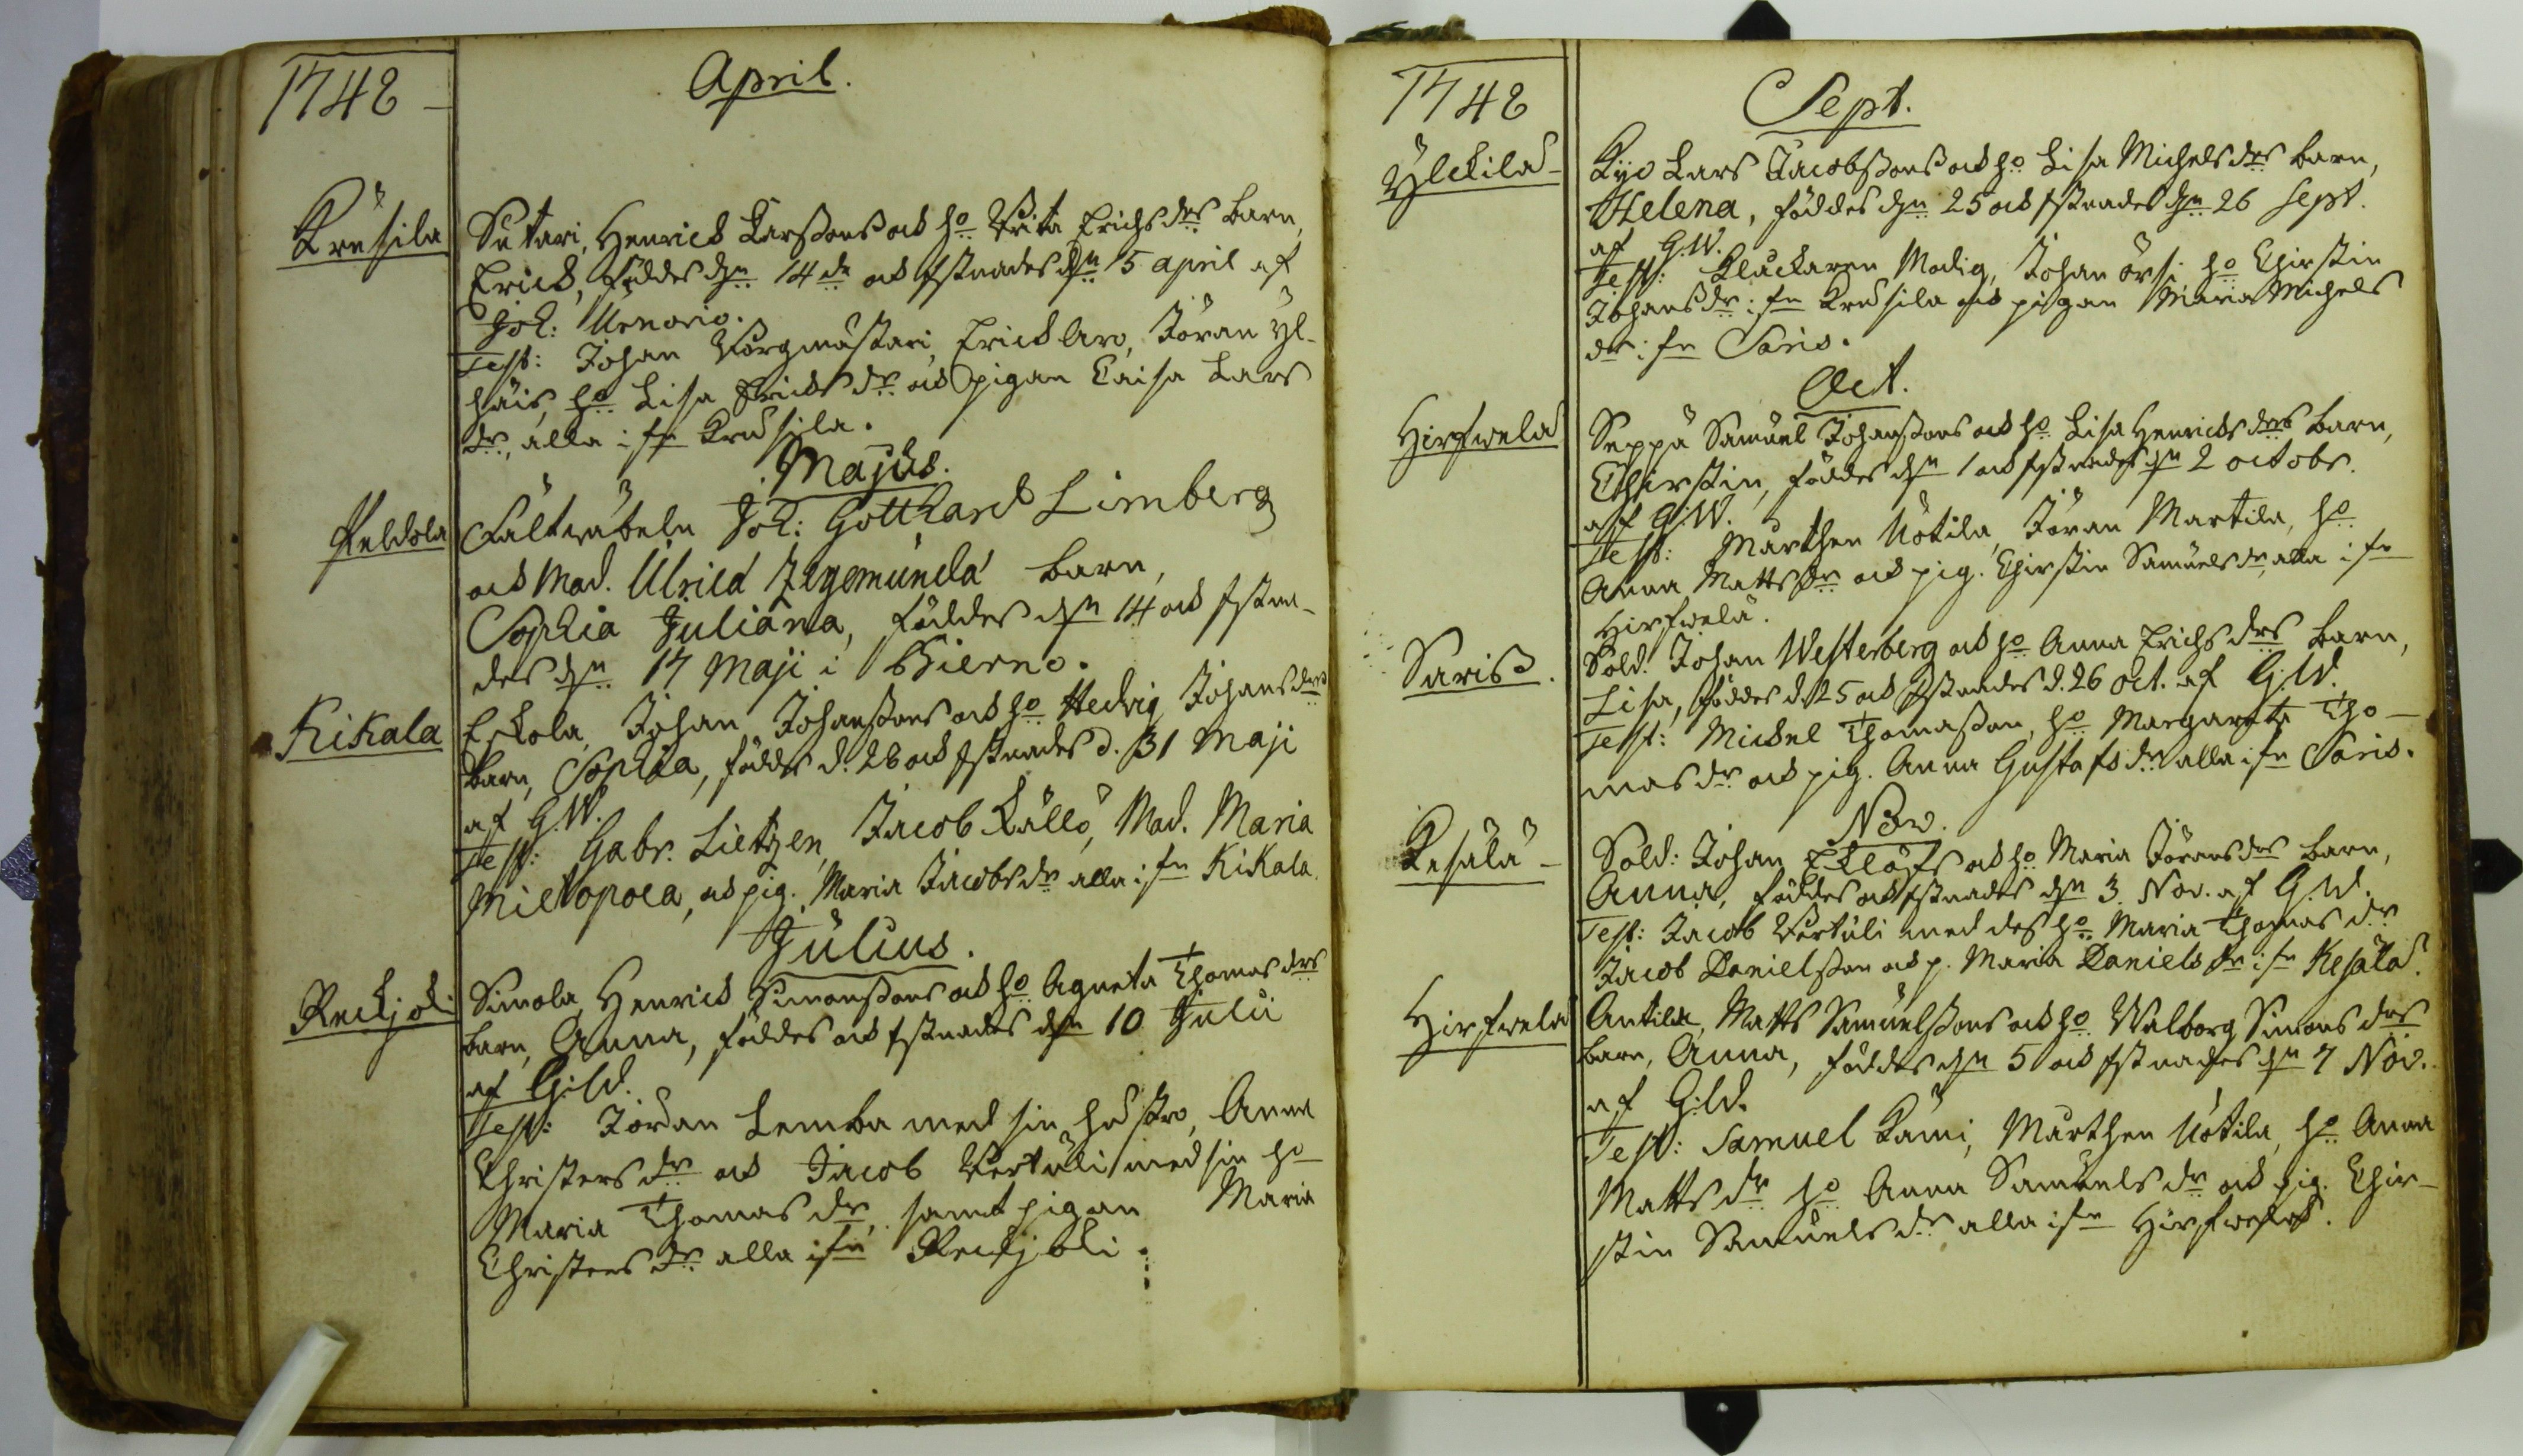 1748
April.
Krusila
Sutari, Henrick Larssons och ho Brita Erichsdrs barn,
Erick, föddes dn 14de och Xstnades dn 15 april af
Joh: Uenorio.
Test: Johan Borgmästari, Erick Aro, Jöran Yl-
häis, ho Lisa Ericksdr och pigan Caisa Lars
dr, alla i fr Krusila.
Majus.
Peldola
Fältwäbeln Joh: Gotthard Limberg
och Mad. Ulrica Zegemunda barn,
Sophia Juliana, föddes dn 14 och Xstna-
des dn 17 Maji i Bierno.
Kikala
Eskola, Johan Johanssons och ho Hedvig Johansdrs
barn, Sophia, föddes d. 28 och Xstnades d. 31 Maji
af G.W.
Test: Gabr. Lietzen, Jacob Källö, Mad. Maria
Mietopoea, och pig. Maria Jacobsdr alla i fr Kikala.
Julius.
Reckjoki
Simola, Henrick Simonssons och ho Agneta Thomasdrs
barn, Anna, föddes och Xstnades dn 10 Julii
af G.W.
Test: Jöran Lemba med sin hustro, Anna
Christersdr och Jacob Pertuli med sin ho
Maria Thomasdr, samt pigan Maria
Christersdr alla i fr Reckjoki.
1748
Sept.
Ylckilä
Kyö Lars Jacobssons och ho Lisa Michelsdrs barn,
Helena, föddes dn 25 och Xstnades dn 26 Sept.
af G.W.
Test: Kluckaren Modig, Johan örsi, ho Chirstin
Johansdr i fr Krusila och pigan Maria Michels
dr i fr Saris.
Oct.
Hirfwelä
Seppä Samuel Johanssons och ho Lisa Henricksdrs barn,
Chirstin, föddes dn 1 och Xstnades dn 2 octobr.
af G.W.
Test: Mårthen Uotila, Jöran Martila, ho
Anna Mattsdr och pig. Chirstin Samuelsdr, alla i fr
Hirfwelä.
Sariss.
Sold. Johan Westerberg och ho Anna Erichsdrs barn,
Lisa, föddes d. 25 och Xstnades d. 26 Oct. af G.W.
Test: Mickel Thomasson, ho Margareta Tho-
masdr och pig. Anna Gustafsdr alla i fr Saris.
Nov.
Kesälä
Sold: Johan Eklöfs och ho Maria Jöransdrs barn,
Anna, föddes och Xstnades dn 3. Nov. af G.W.
Test: Jacob Pertuli med des ho Maria Thomasdr
Jacob Danielsson och p. Maria Danielsdr i fr Kesälä.
Hirfwelä
Antila, Matts Samuelssons och ho Walborg Simonsdrs
barn, Anna, föddes dn 5 och Xstnades dn 7 Nov.
af G.W.
Test: Samuel Lämi, Mårthen Uotila, ho Anna
Mattsdr ho Anna Samuelsdr och pig. Chir-
stin Samuelsdr alla i fr Hirfwelä.